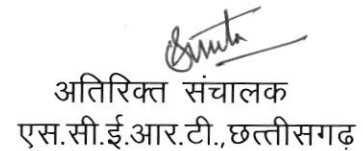 अतिरिक्त संचालक
एस.सी.ई.आर.टी.,छत्तीसगढ़